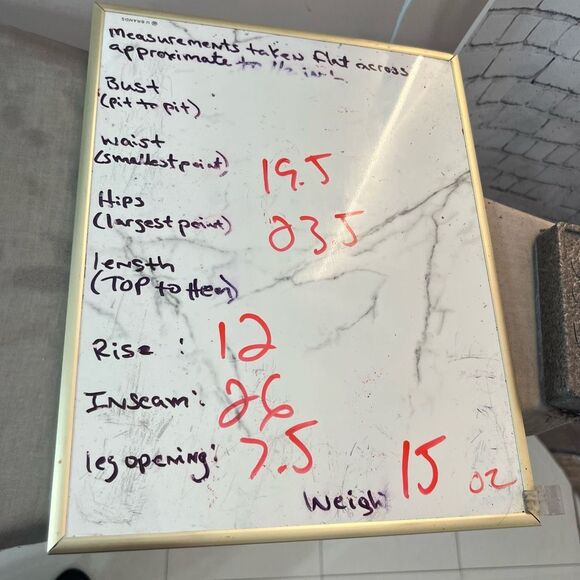 U BRANDS
measurements taken flat across
approximate
Bust
(pit to pit)
waist
(smallest point) 19.5
Hips
(largest point) 235
length
(TOP to Hem)
Rise : 12
Inseam: 26
leg opening: 7.5
Weigh 15 oz